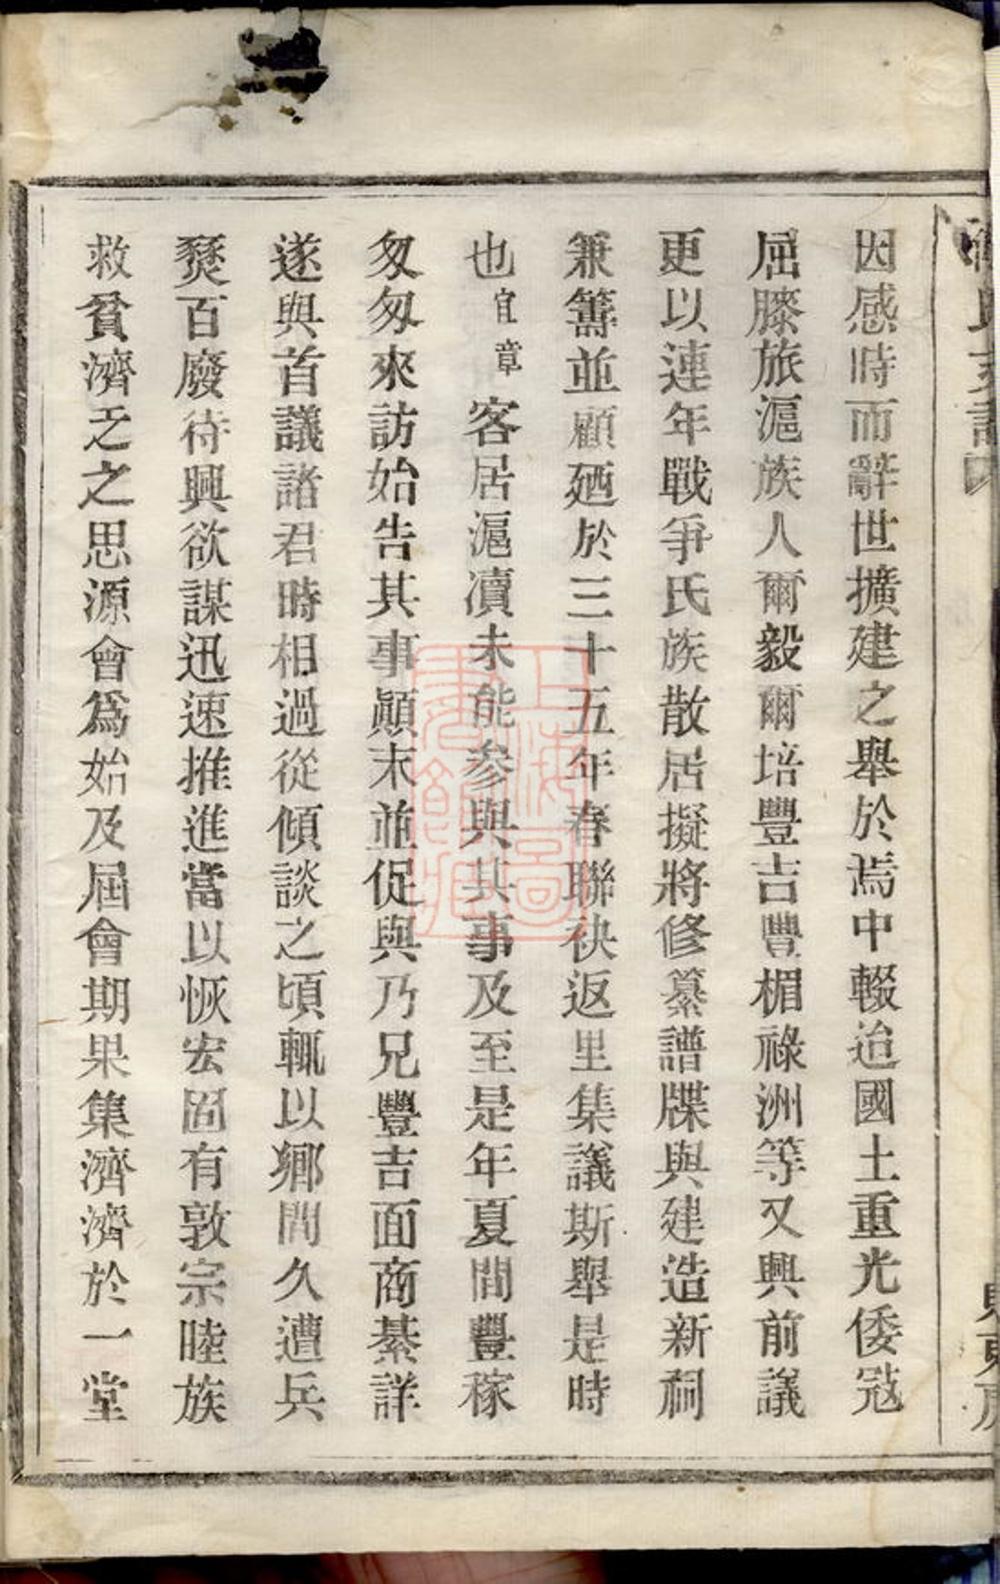 因感時而辭世擴建之舉於焉中輟迨國土重光倭冦
屈膝旅滬族人爾毅爾培豐吉豐楣祿洲等又興前議
更以連年戰爭氏族散居擬將修纂譜牒與建造新祠
兼籌並顧廼於三十五年春聯袂返里集議斯舉是時
也宜章客居滬瀆未能参與其事及至是年夏間豐稼
匆匆來訪始告其事顚末並促與乃兄豐吉面商綦詳
遂與首議諸君時相過從傾談之頃輒以鄕間久遭兵
燹百廢待興欲謀迅速推進當以恢宏固有敦宗睦族
救貧濟乏之思源會爲始及屆會期果集濟濟於一堂
上海圖
書館藏